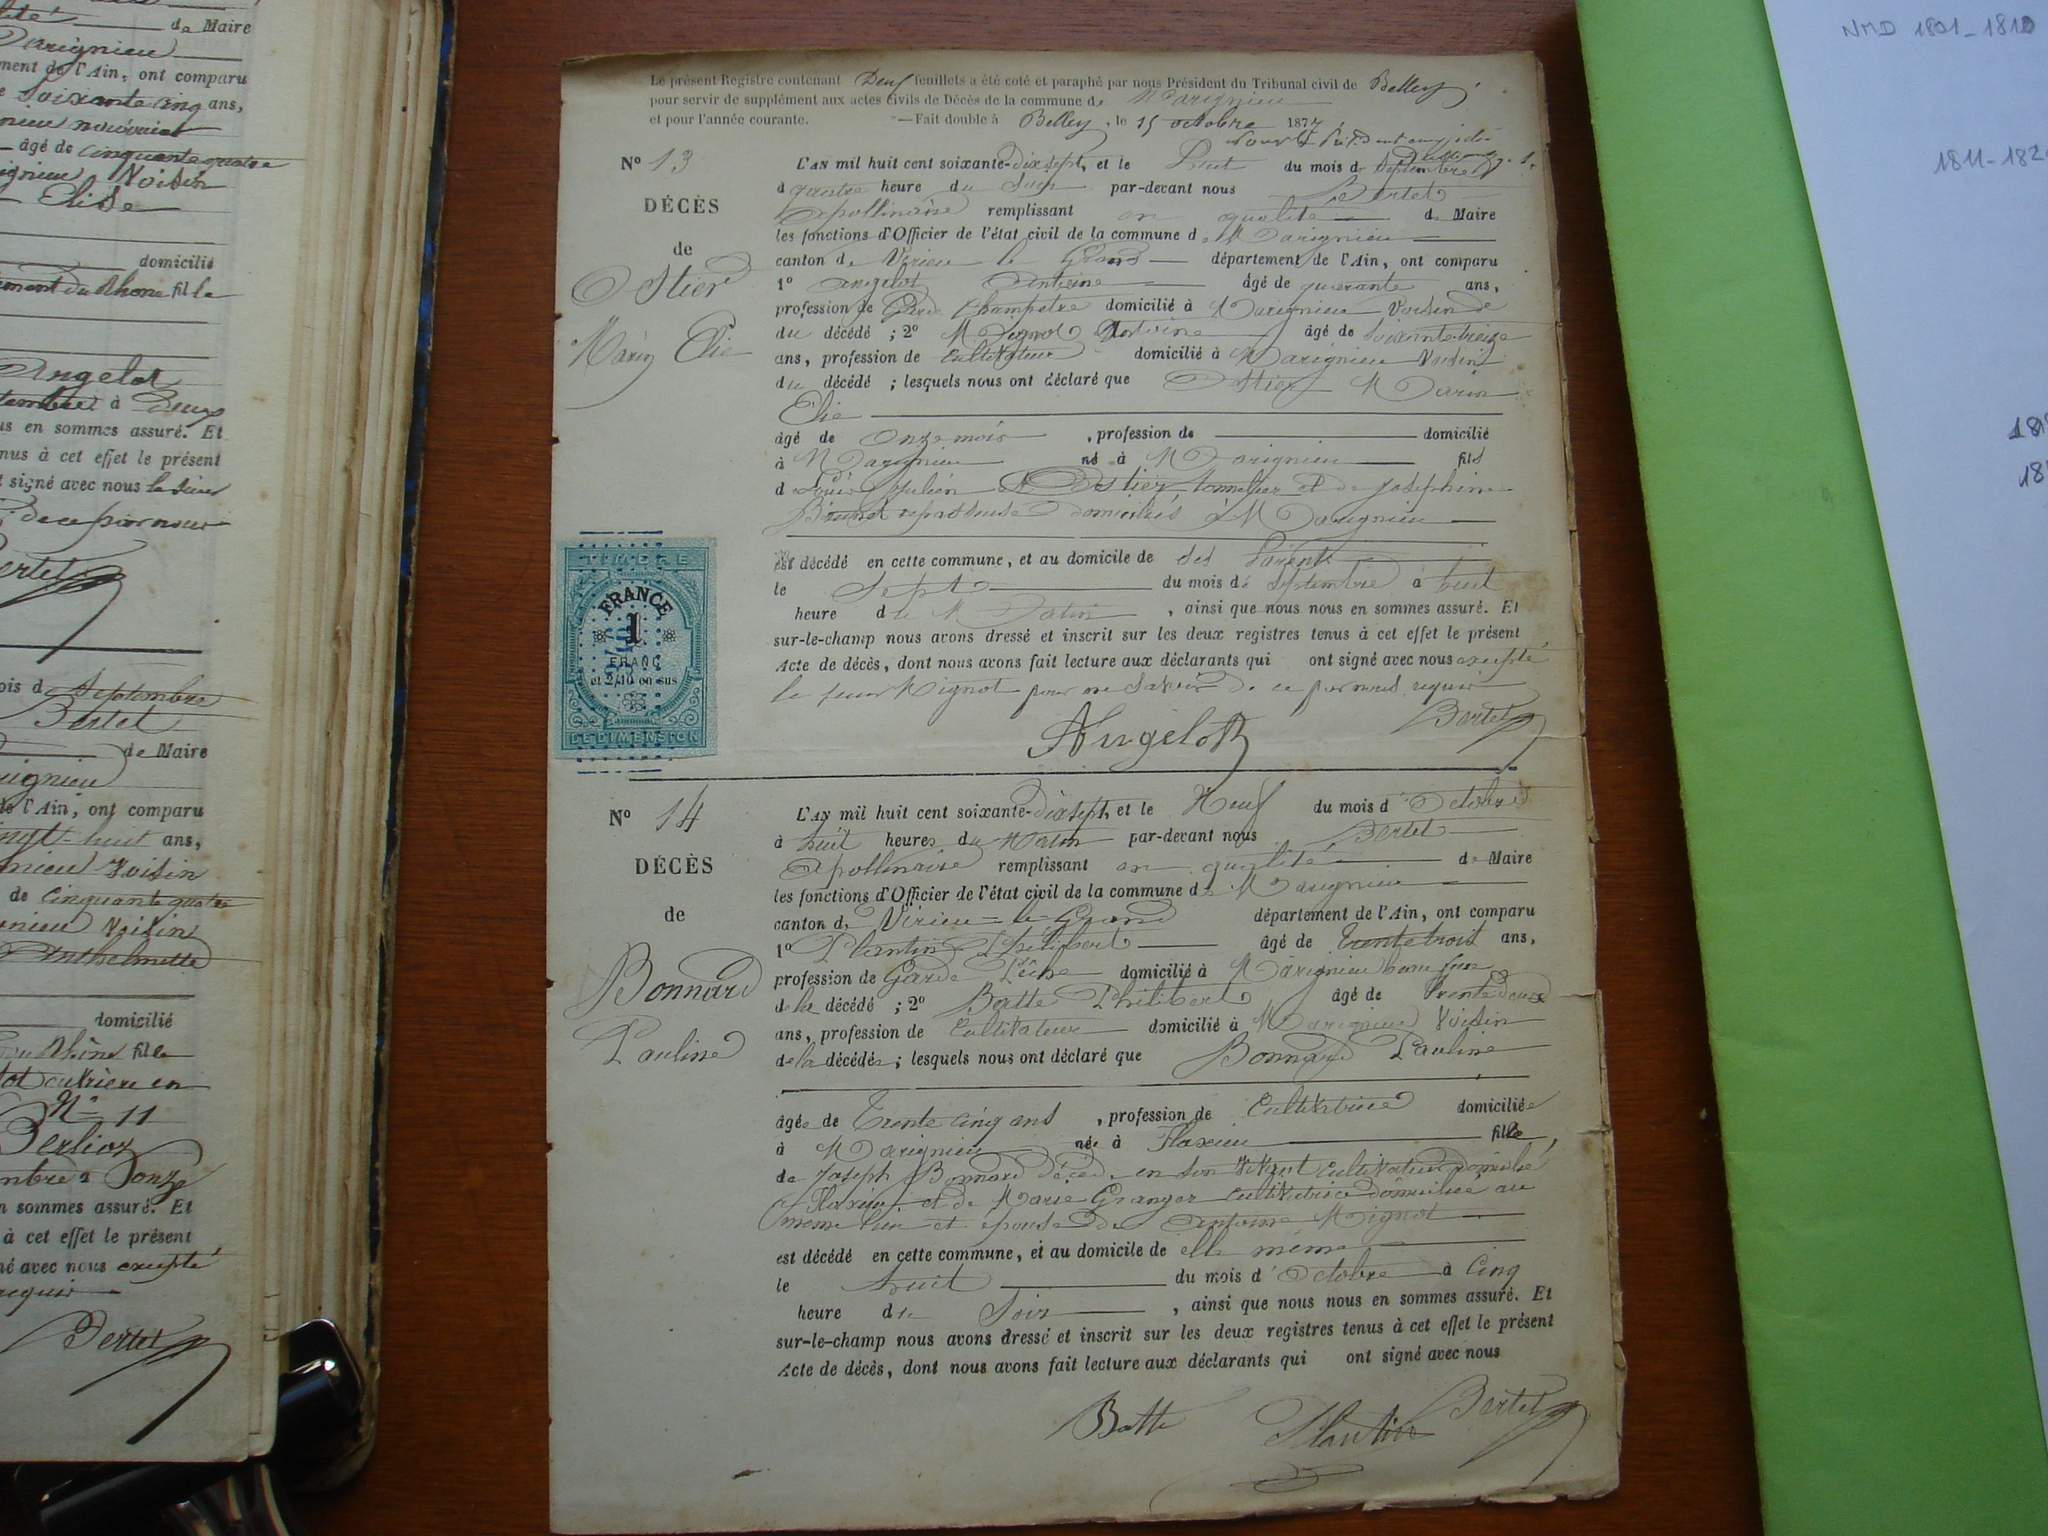 lité de Maire
Marignieu
ment de l'Ain, ont comparu
Soixante cinq ans,
âgé de cinquante quatre
Voisin
Elise
domicilié
ment du Rhone fille
Angelot
à Deux
us en sommes assuré. Et
nus à cet effet le présent
signé avec nous le sieur
de ce par nous
Bertet
ois de Septembre
Bertet
de Maire
de l'Ain, ont comparu
ingt-huit ans,
nieu Voisin
de cinquante quatre
nieu Voisin
Anthelmette
domicilié
du Rhône fille
en
N° 11
Berlioz
mbre à Onze
n sommes assuré. Et
à cet effet le présent
né avec nous excepté
requis
Bertet
Le présent Registre contenant Deux feuillets a été coté et paraphé par nous Président du Tribunal civil de Belley
pour servir de supplément aux actes civils de Décès de la commune de Marignieu
et pour l'année courante. — Fait double à Belley, le 15 octobre 1877
N° 13
DÉCÈS
de
Ostier
Marin Elie
L'AN mil huit cent soixante-Dix sept, et le huit du mois de Septembre
à quatre heure du Soir par-devant nous Bertet
Apollinaire remplissant en qualité de Maire
les fonctions d'Officier de l'état civil de la commune de Marignieu
canton de Virieu le Grand département de l'Ain, ont comparu
1° Angelot Antoine âgé de quarante ans,
profession de Garde Champetre domicilié à Marignieu Voisin de
du décédé ; 2° Mignot Antoine âgé de Soixante treize
ans, profession de Cultivateur domicilié à Marignieu Voisin
du décédé ; lesquels nous ont déclaré que Ostier Marin
Elie
âgé de Onze mois, profession de domicilié
à Marignieu né à Marignieu fils
d Louis Julien Ostier tonnelier et de Joséphine
Brunet repasseuse domiciliés à Marignieu
Est décédé en cette commune, et au domicile de ses Parents
le Sept du mois de Septembre à huit
heure du Matin, ainsi que nous nous en sommes assuré. Et
sur-le-champ nous avons dressé et inscrit sur les deux registres tenus à cet effet le présent
Acte de décès, dont nous avons fait lecture aux déclarants qui ont signé avec nous excepté
le sieur Mignot pour ne Savoir de ce par nous requis
Angelot Bertet
TIMBRE
FRANCE
1
FRANC
et 2/10 en sus
DE DIMENSION
N° 14
DÉCÈS
de
Bonnard
Pauline
L'AN mil huit cent soixante-Dix sept, et le Neuf du mois d'Octobre
à huit heures du Matin par-devant nous Bertet
Apollinaire remplissant en qualité de Maire
les fonctions d'Officier de l'état civil de la commune de Marignieu
canton de Virieu-le-Grand département de l'Ain, ont comparu
1° Plantin Philibert âgé de trente trois ans,
profession de Garde Pêche domicilié à Marignieu beau frère
de la décédé ; 2° Batte Philibert âgé de trente deux
ans, profession de Cultivateur domicilié à Marignieu Voisin
de la décédée ; lesquels nous ont déclaré que Bonnard Pauline
âgée de Trente cinq ans, profession de Cultivatrice domiciliée
à Marignieu née à Flaxieu fille
de Joseph Bonnard décédé en son vivant cultivateur domicilié
à Flaxieu et de Marie Granger cultivatrice domiciliée au
même lieu et épouse de Antoine Mignot
est décédé en cette commune, et au domicile de elle même
le huit du mois d'Octobre à Cinq
heure du Soir, ainsi que nous nous en sommes assuré. Et
sur-le-champ nous avons dressé et inscrit sur les deux registres tenus à cet effet le présent
Acte de décès, dont nous avons fait lecture aux déclarants qui ont signé avec nous
Batte Plantin Bertet
NMD 1801-1810
1811-182